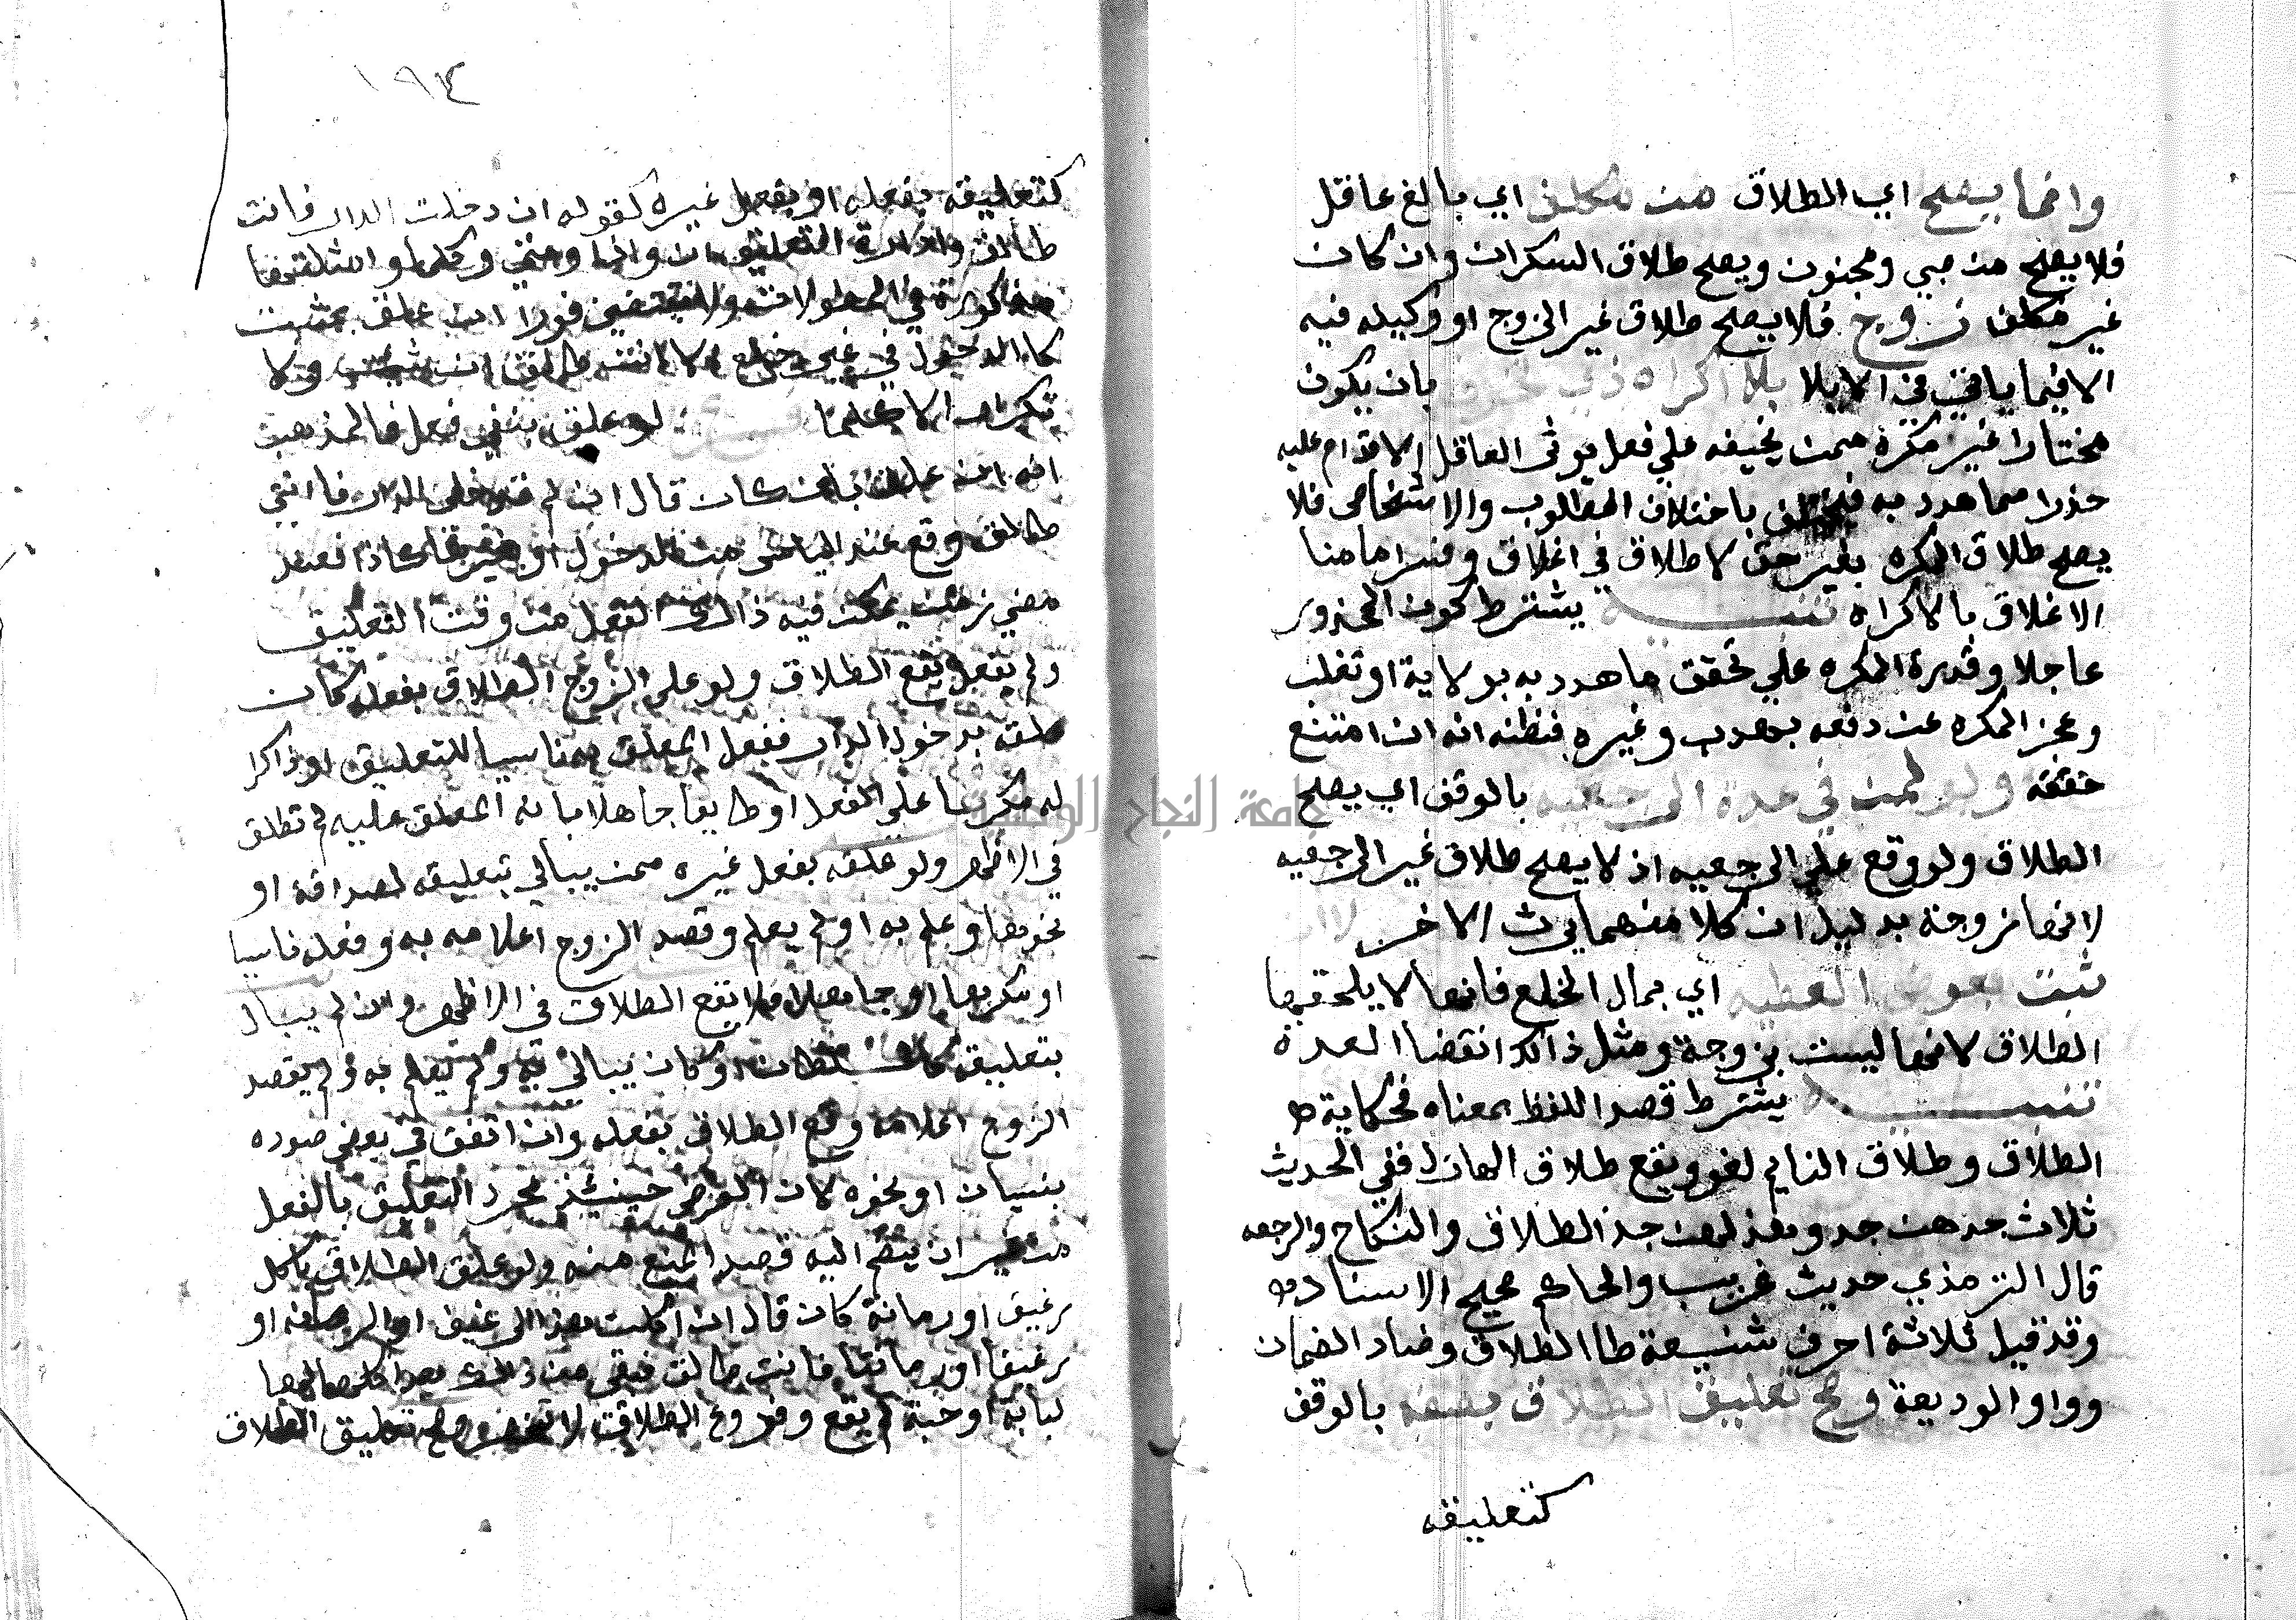 وانما يصح اي الطلاق من مكلف اي بالغ عاقل
فلا يصح من صبي ومجنون ويصح طلاق السكران وان كان
غير مكلف زوج فلا يصح طلاق غير الزوج او وكيله فيه
الا فيما ياتي في الايلا بلا اكراه ذي بان يكون
مختارا غير مكره ممن يخيفه علي فعل يوثر العاقل الاقدام عليه
حذرا مما هدد به فيختلف باختلاف المطلوب والاشخاص فلا
يصح طلاق المكره بغير حق لا طلاق في اغلاق وفسر امامنا
الاغلاق بالاكراه تنبيه يشترط كون المحذور
عاجلا وقدرة المكره علي تحقق ما هدد به بولاية او تغلب
وعجز المكره عن دفعه بهرب وغيره فنظنه انه ان امتنع
حققه ولو لمن في عدة الرجعيه بالوقف اي يصح
الطلاق ولو وقع علي الرجعيه اذ لا يصح طلاق غير الرجعيه
لانها زوجة بدليل ان كلا منهما يرث الاخر لا ان
ثبت بعوض العطيه اي بمال الخلع فانها لا يلحقها
الطلاق لانها ليست بزوجة ومثل ذالك انقضا العدة
تنبيه يشترط قصد اللفظ بمعناه فحكاية
الطلاق وطلاق النايم لغو ويقع طلاق الهازل ففي الحديث
ثلاث جدهن جد وهزلهن جد الطلاق والنكاح والرجعه
قال الترمذي حديث غريب والحاكم صحيح الاسناد
وقد قيل ثلاثة احرف شنيعة طا الطلاق وضاد الضمان
وواو الوديعة وصح تعليق الطلاق بصفه بالوقف
كتعليقه
١٩٤
كتعليقه بفعله او بفعل غيره كقوله ان دخلت الدار فانت
طالق وادوات التعليق ان واذا ومتي وكلما وامثلتها
مذكورة في المطولات ولا يقتضين فورا ان علق بمثبت
كالدخول في غير خلع الا انت طالق ان شئت ولا
تكرارا الا كلما لو علق بنفي فعل فالمذهب
انه ان علق بان كان قال ان لم تدخلي الدار فانتي
طالق وقع عند الياس من الدخول او بغيرها كاذا فعند
مضي زمن يمكن فيه ذالك الفعل من وقت التعليق
ولم يفعل يقع الطلاق ولو علق الزوج الطلاق بفعله كان
علقه بدخول الدار ففعل المعلق به ناسيا للتعليق او ذاكرا
له مكرها علي الفعل او طايعا جاهلا بانه المعلق عليه لم تطلق
في الاظهر ولو علقه بفعل غيره ممن يبالي بتعليقه لصداقة او
نحوها وعلم به او لم يعلم وقصد الزوج اعلامه به وفعله ناسيا
او مكرها او جاهلا فلا يقع الطلاق في الاظهر وان لم يبال
بتعليقه كالسلطان او كان يبالي به ولم يعلم به ولم يقصد
الزوج اعلامه وقع الطلاق بفعله وان اتفق في بعض صوره
بنسيان او نحوه لان الغرض حينئذ مجرد التعليق بالفعل
من غير ان ينضم اليه قصد المنع منه ولو علق الطلاق باكل
رغيف او رمانة كان قال ان اكلت هذا الرغيف او الرمانه او
رغيفا او رمانة فانت طالق فبقي من ذالك بعد اكلها لهما
لبابة او حبة لم يقع وفروع الطلاق لا تنحصر وصح تعليق الطلاق